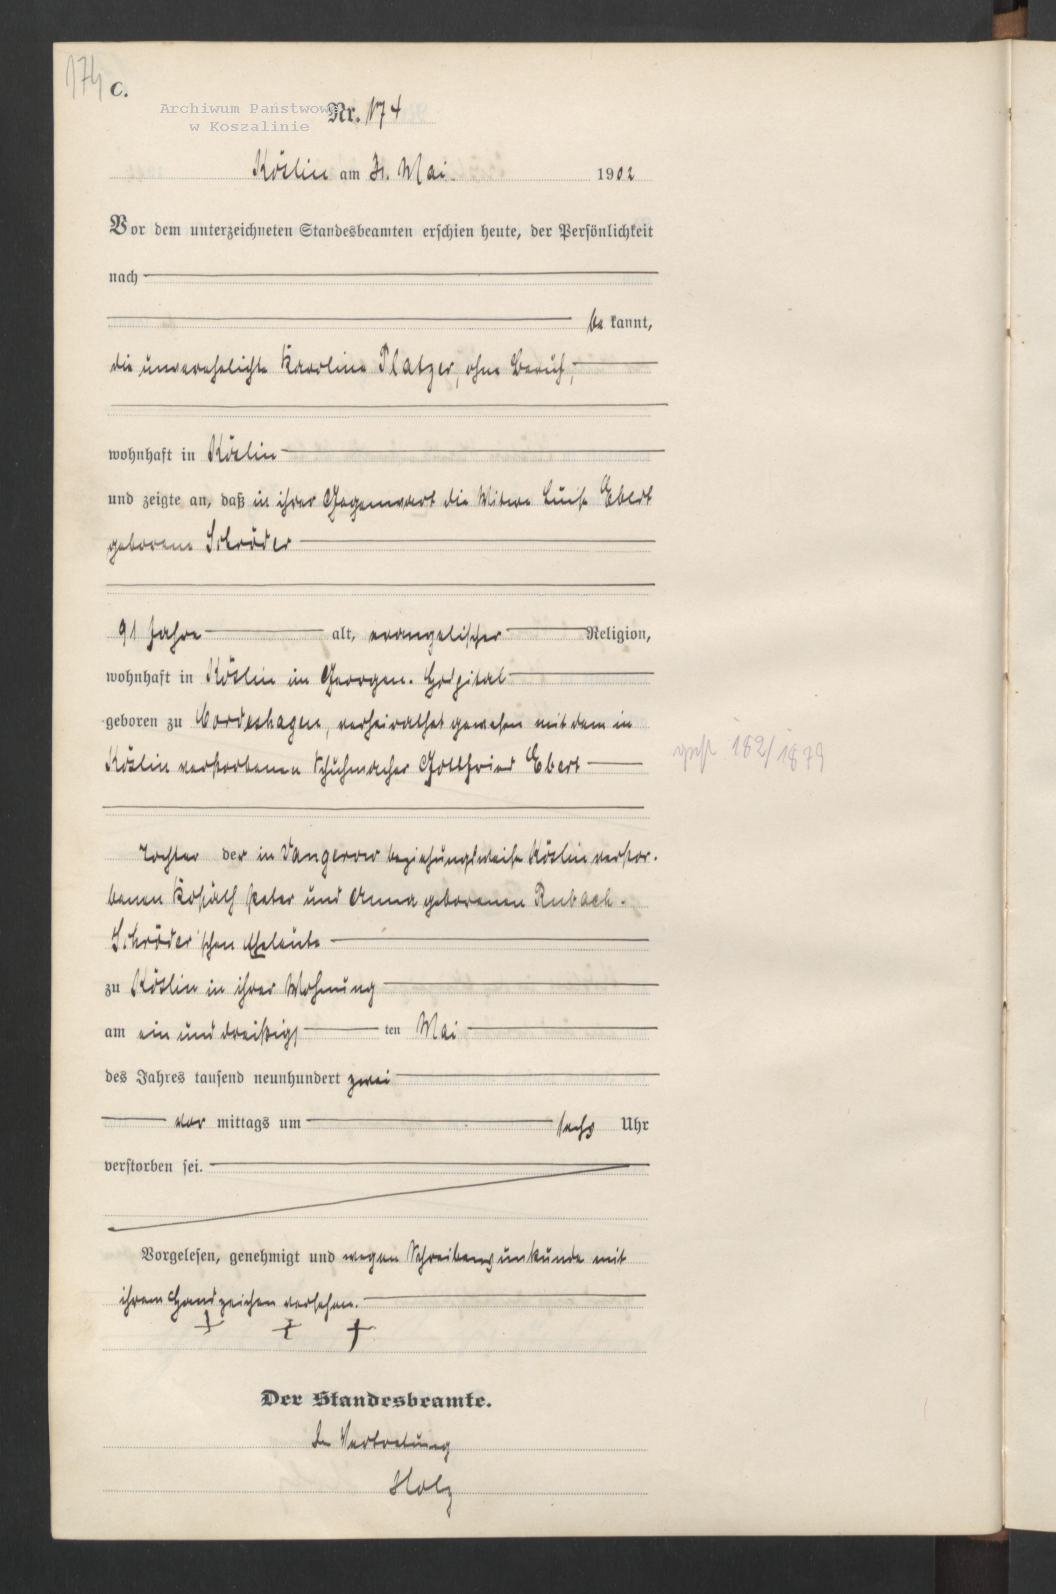 174
C.
Archiwum Państwowe
w Koszalinie
Nr. 174
Köslin am 31. Mai 1902
Vor dem unterzeichneten Standesbeamten erschien heute, der Persönlichkeit
nach
be kannt,
die unverehelichte Karoline Platzer, ohne Beruf,
wohnhaft in Köslin
und zeigte an, daß in ihrer Gegenwart die Witwe Luise Ebert
geborene Schröder
91 Jahre alt, evangelischer Religion,
wohnhaft in Köslin im Georgen-Hospital
geboren zu Cordeshagen, verheirathet gewesen mit dem in
Köslin verstorbenen Schuhmacher Gottfried Ebert
gest 182/1879
Tochter der in Vangerow beziehungsweise Köslin verstor-
benen Kossäth Peter und Anna geborenen Rubach-
Schröder'schen Eheleute
zu Köslin in ihrer Wohnung
am ein und dreißigs ten Mai
des Jahres tausend neunhundert zwei
vor mittags um sechs Uhr
verstorben sei.
Vorgelesen, genehmigt und wegen Schreibensunkunde mit
ihrem Handzeichen versehen.
+ + +
Der Standesbeamte.
In Vertretung
Holz